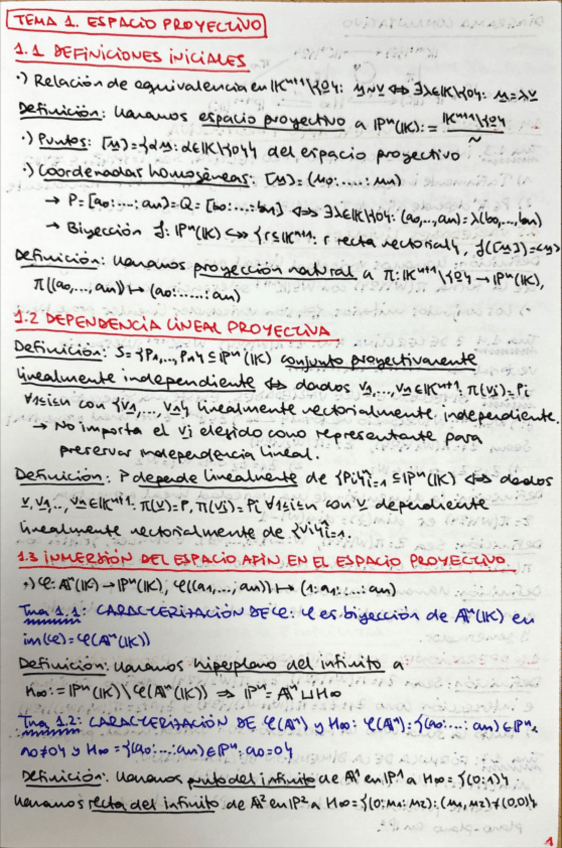 TEMA 1. ESPACIO PROYECTIVO
1.1 DEFINICIONES INICIALES
·) Relación de equivalencia en 𝕂ⁿ⁺¹\{0}: u~v ⟺ ∃λ∈𝕂\{0}: u=λv
Definición: Llamamos espacio proyectivo a ℙⁿ(𝕂):= 𝕂ⁿ⁺¹\{0}/~
·) Puntos: [u]={αu: α∈𝕂\{0}} del espacio proyectivo
·) Coordenadas homogéneas: [u]=(u0:....:un)
→ P=[a0:...:an]=Q=[b0:...:bn] ⟺ ∃λ∈𝕂\{0}: (a0,..,an)=λ(b0,...,bn)
→ Biyección f: ℙⁿ(𝕂) ⟺ {r⊆𝕂ⁿ⁺¹: r recta vectorial}, f([u])=<u>
Definición: Llamamos proyección natural a π: 𝕂ⁿ⁺¹\{0} → ℙⁿ(𝕂),
π((a0,...,an)) ↦ (a0:....:an)
1.2 DEPENDENCIA LINEAL PROYECTIVA
Definición: S={P1,..,Pn} ⊆ ℙⁿ(𝕂) conjunto proyectivamente
linealmente independiente ⟺ dados v1,...,vn∈𝕂ⁿ⁺¹, π(vi)=Pi
∀1≤i≤n con {v1,...,vn} linealmente vectorialmente independiente.
→ No importa el vi elegido como representante para
preservar independencia lineal.
Definición: P depende linealmente de {Pi}ⁿi=1 ⊆ℙⁿ(𝕂) ⟺ dados
v,v1,..,vn∈𝕂ⁿ⁺¹: π(v)=P, π(vi)=Pi ∀1≤i≤n con v dependiente
linealmente vectorialmente de {vi}ⁿi=1.
1.3 INMERSIÓN DEL ESPACIO AFÍN EN EL ESPACIO PROYECTIVO
·) φ: 𝔸ⁿ(𝕂) → ℙⁿ(𝕂), φ((a1,...,an)) ↦ (1:a1:...:an)
Tma 1.1: CARACTERIZACIÓN DE φ: φ es biyección de 𝔸ⁿ(𝕂) en
im(φ)=φ(𝔸ⁿ(𝕂))
Definición: Llamamos hiperplano del infinito a
H∞:=ℙⁿ(𝕂)\φ(𝔸ⁿ(𝕂)) ⇒ ℙⁿ=𝔸ⁿ⊔H∞
Tma 1.2: CARACTERIZACIÓN DE φ(𝔸ⁿ) y H∞: φ(𝔸ⁿ)={(a0:...:an)∈ℙⁿ:
a0≠0} y H∞={(a0:...:an)∈ℙⁿ: a0=0}
Definición: Llamamos punto del infinito de 𝔸¹ en ℙ¹ a H∞={(0:1)}
Llamamos recta del infinito de 𝔸² en ℙ² a H∞={(0:u1:u2):(u1,u2)≠(0,0)}
1